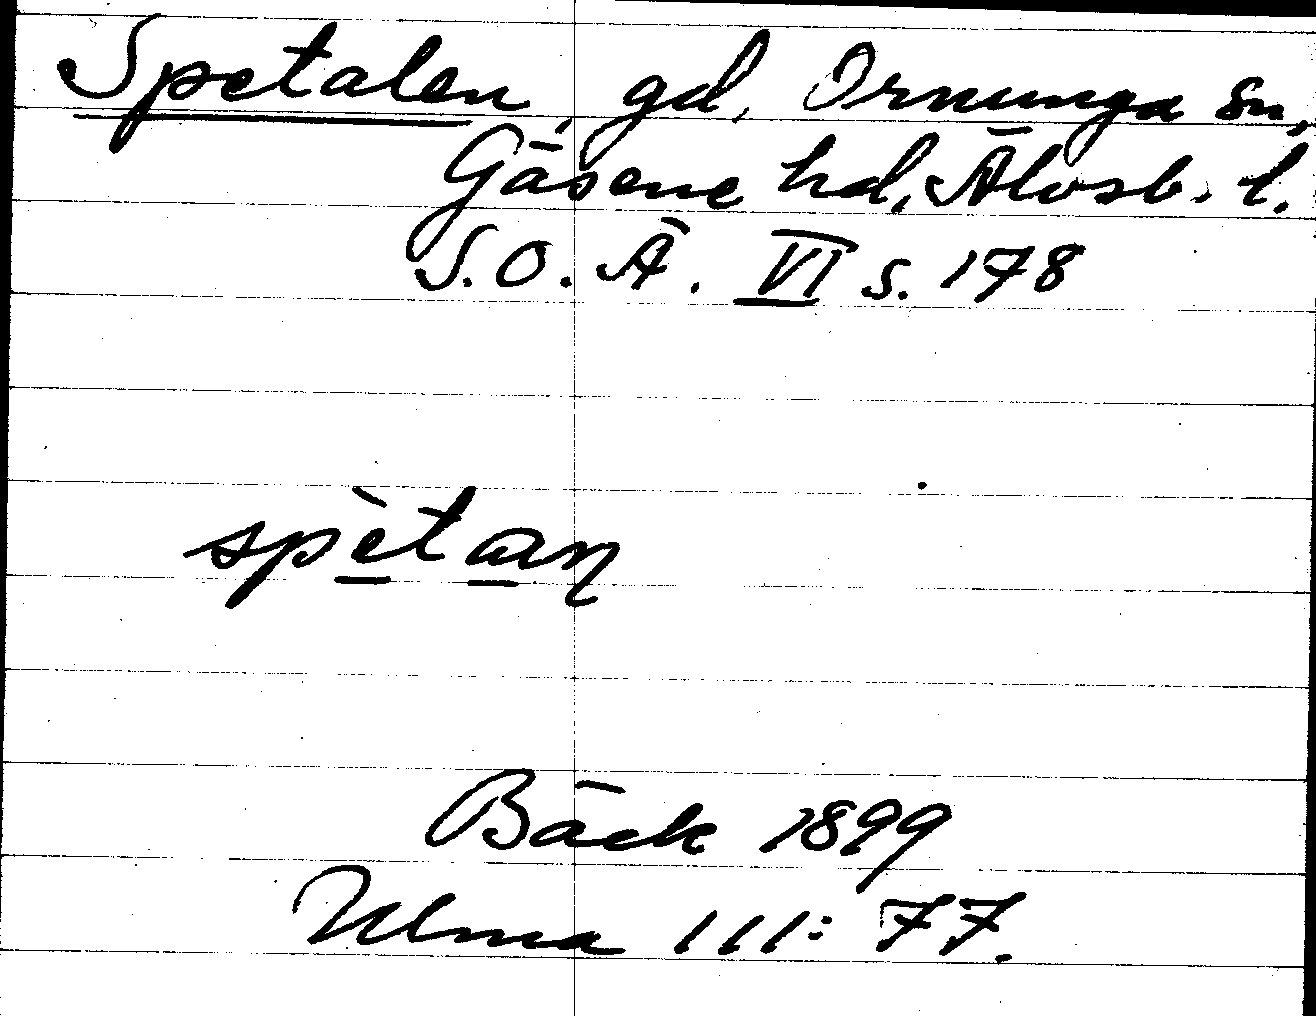 Spetalen, gd, Ornunga sn,
Gäsene hd, Älvsb. l.
S.O.Ä. VI s. 178
spètaɳ
Bäck 1899
Ulma 111:77.